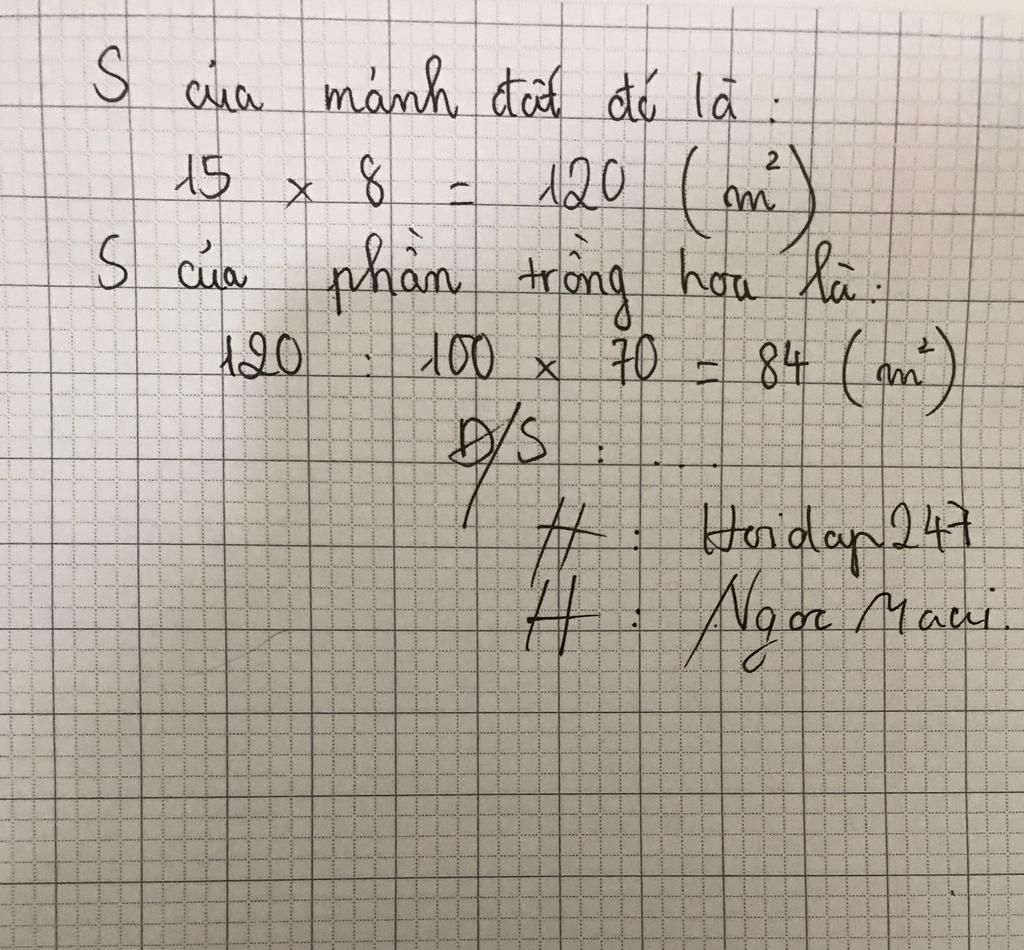 S của mảnh đất đó là :
15 x 8 = 120 (m²)
S của phần trồng hoa là :
120 : 100 x 70 = 84 (m²)
Đ/S : ....
H : Hoidap247
H : Ngoc Maui.